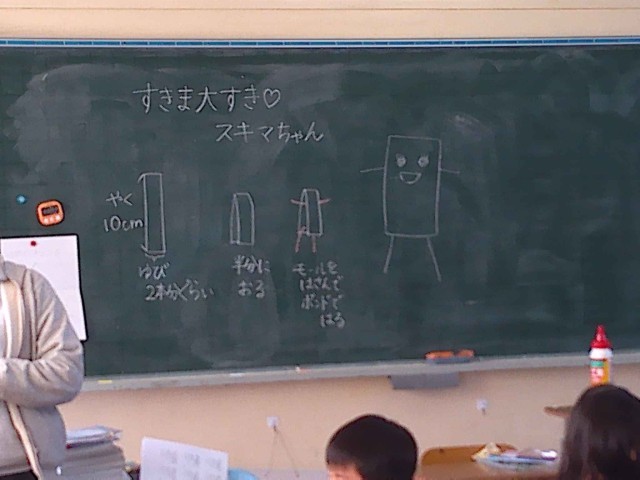 すきま大すき♡
スキマちゃん
やく
10cm
ゆび
2本分くらい
半分に
おる
モールを
はさんで
ボンドで
はる